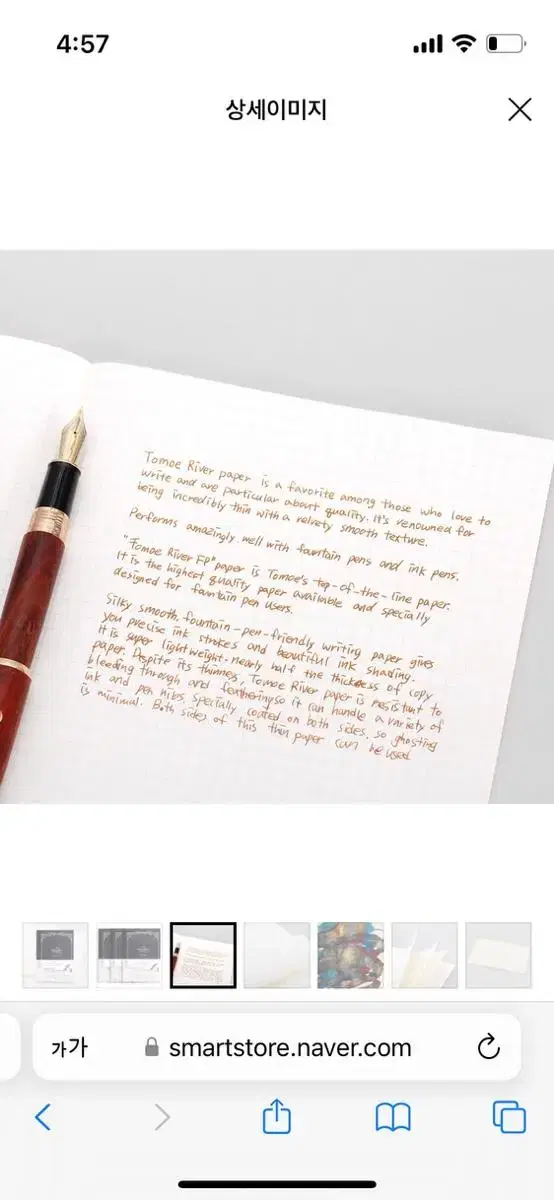 4:57
상세이미지
Tomoe River paper is a favorite among those who love to
write and are particular about quality. It's renowned for
being incredibly thin with a velvety smooth texture.
Performs amazingly well with fountain pens and ink pens.
"Tomoe River FP" paper is Tomoe's top-of-the-line paper.
It is the highest quality paper available and specially
designed for fountain pen users.
Silky smooth, fountain-pen-friendly writing paper gives
you precise ink strokes and beautiful ink shading.
It is super lightweight-nearly half the thickness of copy
paper. Despite its thinness, Tomoe River paper is resistant to
bleeding through and feathering, so it can handle a variety of
ink and pen nibs, specially coated on both sides, so ghosting
is minimal. Both sides of this thin paper can be used
가가 smartstore.naver.com